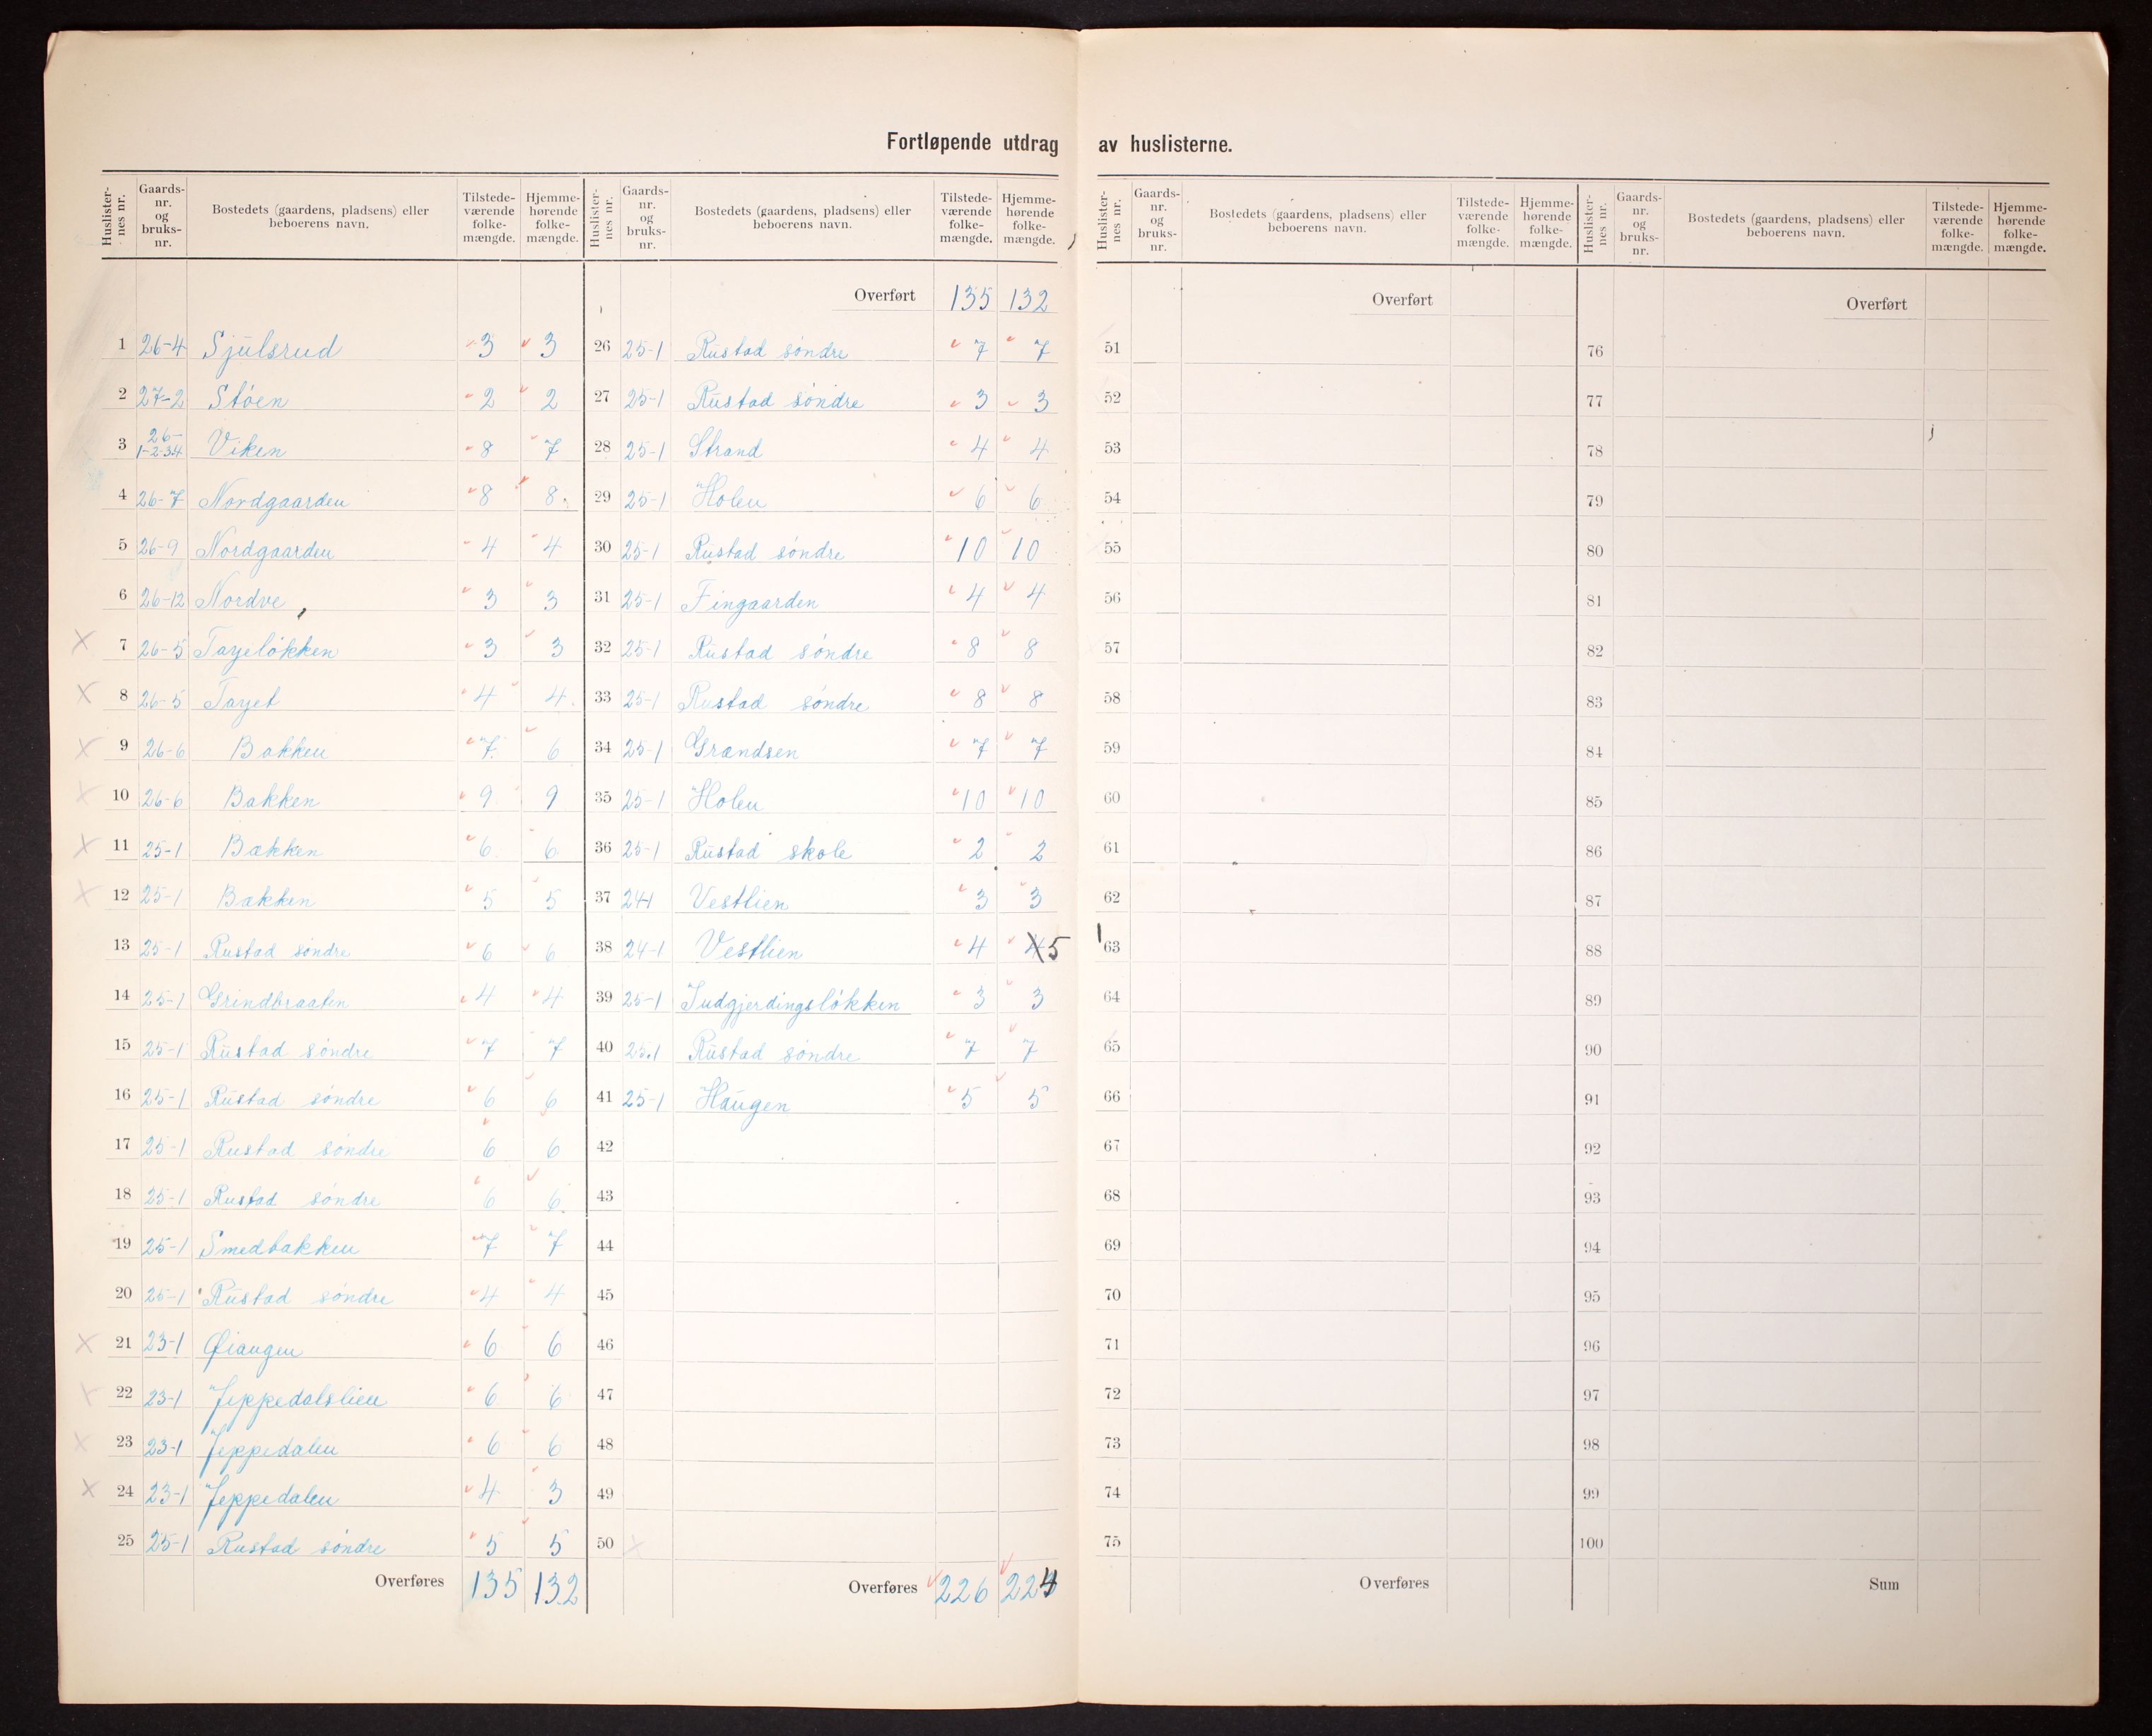 Fortløpende utdrag av huslisterne.
Huslisternes nr. Gaards-nr. og bruks-nr. Bostedets (gaardens, pladsens) eller beboerens navn. Tilstedeværende folkemængde. Hjemmehørende folkemængde.
1 26-4 Sjülsrud 3 3
2 27-2 Støen 2 2
3 26-1-2-3-4 Viken 8 7
4 26-7 Nordgaarden 8 8
5 26-9 Nordgaarden 4 4
6 26-12 Nordve 3 3
7 26-5 Tajeløkken 3 3
8 26-5 Tajet 4 4
9 26-6 Bakken 7 6
10 26-6 Bakken 9 9
11 25-1 Bakken 6 6
12 25-1 Bakken 5 5
13 25-1 Rustad søndre 6 6
14 25-1 Grindbraaten 4 4
15 25-1 Rüstad søndre 7 7
16 25-1 Rüstad søndre 6 6
17 25-1 Rustad søndre 6 6
18 25-1 Rustad søndre 6 6
19 25-1 Smedbakken 7 7
20 25-1 Rüstad søndre 4 4
21 23-1 Øiangen 6 6
22 23-1 Jeppedalslien 6 6
23 23-1 Jeppedalen 6 6
24 23-1 Jeppedalen 4 3
25 25-1 Rustad søndre 5 5
Overføres 135 132
Huslisternes nr. Gaards-nr. og bruks-nr. Bostedets (gaardens, pladsens) eller beboerens navn. Tilstedeværende folkemængde. Hjemmehørende folkemængde.
Overført 135 132
26 25-1 Rüstad søndre 7 7
27 25-1 Rüstad søndre 3 3
28 25-1 Strand 4 4
29 25-1 Holen 6 6
30 25-1 Rüstad søndre 10 10
31 25-1 Fingaarden 4 4
32 25-1 Rüstad søndre 8 8
33 25-1 Rustad søndre 8 8
34 25-1 Grændsen 7 7
35 25-1 Holen 10 10
36 25-1 Rüstad skole 2 2
37 24-1 Vestlien 3 3
38 24-1 Vestlien 4 4 5
39 25-1 Indgjerdingsløkken 3 3
40 25.1 Rüstad søndre 7 7
41 25-1 Haugen 5 5
42
43
44
45
46
47
48
49
50
Overføres 226 224
Huslisternes nr. Gaards-nr. og bruks-nr. Bostedets (gaardens, pladsens) eller beboerens navn. Tilstedeværende folkemængde. Hjemmehørende folkemængde.
Overført
51
52
53
54
55
56
57
58
59
60
61
62
63
64
65
66
67
68
69
70
71
72
73
74
75
Overføres
Huslisternes nr. Gaards-nr. og bruks-nr. Bostedets (gaardens, pladsens) eller beboerens navn. Tilstedeværende folkemængde. Hjemmehørende folkemængde.
Overført
76
77
78
79
80
81
82
83
84
85
86
87
88
89
90
91
92
93
94
95
96
97
98
99
100
Sum